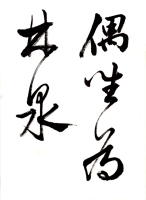 偶坐為
林泉